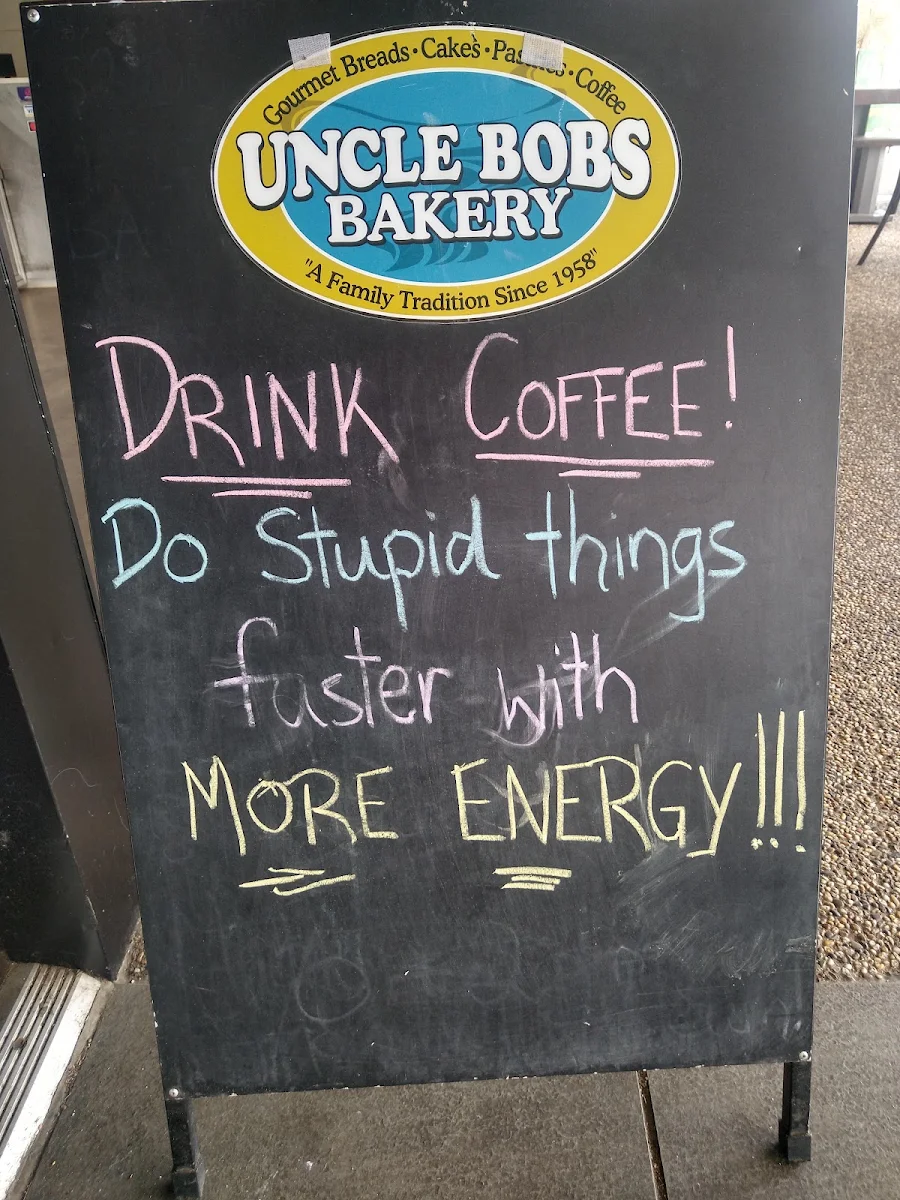 Gourmet Breads · Cakes · Pastries · Coffee
UNCLE BOBS
BAKERY
"A Family Tradition Since 1958"
DRINK COFFEE!
Do Stupid things
faster with
MORE ENERGY!!!